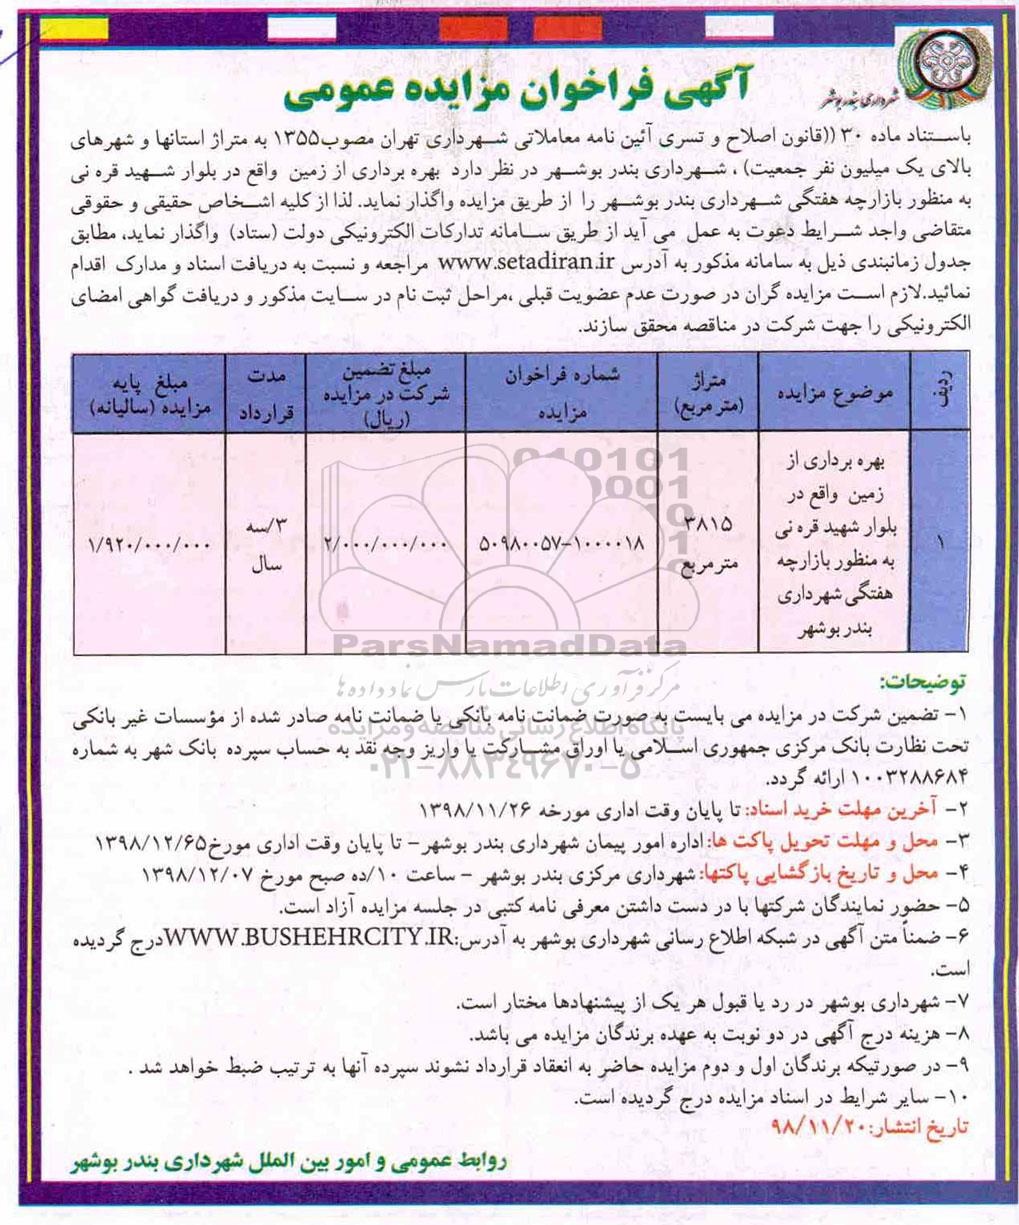 شهرداری بندر بوشهر
آگهی فراخوان مزایده عمومی
باستناد ماده ۳۰ ((قانون اصلاح و تسری آئین نامه معاملاتی شهرداری تهران مصوب۱۳۵۵ به متراژ استانها و شهرهای
بالای یک میلیون نفر جمعیت) ، شهرداری بندر بوشهر در نظر دارد بهره برداری از زمین واقع در بلوار شهید قره نی
به منظور بازارچه هفتگی شهرداری بندر بوشهر را از طریق مزایده واگذار نماید. لذا از کلیه اشخاص حقیقی و حقوقی
متقاضی واجد شرایط دعوت به عمل می آید از طریق سامانه تدارکات الکترونیکی دولت (ستاد) واگذار نماید، مطابق
جدول زمانبندی ذیل به سامانه مذکور به آدرس www.setadiran.ir مراجعه و نسبت به دریافت اسناد و مدارک اقدام
نمائید.لازم است مزایده گران در صورت عدم عضویت قبلی ،مراحل ثبت نام در سایت مذکور و دریافت گواهی امضای
الکترونیکی را جهت شرکت در مناقصه محقق سازند.
ردیف
موضوع مزایده
متراژ
(متر مربع)
شماره فراخوان
مزایده
مبلغ تضمین
شرکت در مزایده
(ریال)
مدت
قرارداد
مبلغ پایه
مزایده (سالیانه)
۱
بهره برداری از
زمین واقع در
بلوار شهید قره نی
به منظور بازارچه
هفتگی شهرداری
بندر بوشهر
۳۸۱۵
متر مربع
۵۰۹۸۰۰۵۷-۱۰۰۰۰۱۸
۲/۰۰۰/۰۰۰/۰۰۰
۳/سه
سال
۱/۹۲۰/۰۰۰/۰۰۰
ParsNamadData
مرکز فرآوری اطلاعات پارس نماد داده ها
پایگاه اطلاع رسانی مناقصه و مزایده
۰۲۱-۸۸۳۴۹۶۷۰-۵
توضیحات:
۱- تضمین شرکت در مزایده می بایست به صورت ضمانت نامه بانکی یا ضمانت نامه صادر شده از مؤسسات غیر بانکی
تحت نظارت بانک مرکزی جمهوری اسلامی یا اوراق مشارکت یا واریز وجه نقد به حساب سپرده بانک شهر به شماره
۱۰۰۳۲۸۸۶۸۴ ارائه گردد.
۲- آخرین مهلت خرید اسناد: تا پایان وقت اداری مورخه ۱۳۹۸/۱۱/۲۶
۳- محل و مهلت تحویل پاکت ها: اداره امور پیمان شهرداری بندر بوشهر- تا پایان وقت اداری مورخ۱۳۹۸/۱۲/۶۵
۴- محل و تاریخ بازگشایی پاکتها: شهرداری مرکزی بندر بوشهر - ساعت ۱۰/ده صبح مورخ ۱۳۹۸/۱۲/۰۷
۵- حضور نمایندگان شرکتها با در دست داشتن معرفی نامه کتبی در جلسه مزایده آزاد است.
۶- ضمناً متن آگهی در شبکه اطلاع رسانی شهرداری بوشهر به آدرس:WWW.BUSHEHRCITY.IRدرج گردیده
است.
۷- شهرداری بوشهر در رد یا قبول هر یک از پیشنهادها مختار است.
۸- هزینه درج آگهی در دو نوبت به عهده برندگان مزایده می باشد.
۹- در صورتیکه برندگان اول و دوم مزایده حاضر به انعقاد قرارداد نشوند سپرده آنها به ترتیب ضبط خواهد شد .
۱۰- سایر شرایط در اسناد مزایده درج گردیده است.
تاریخ انتشار:۹۸/۱۱/۲۰
روابط عمومی و امور بین الملل شهرداری بندر بوشهر